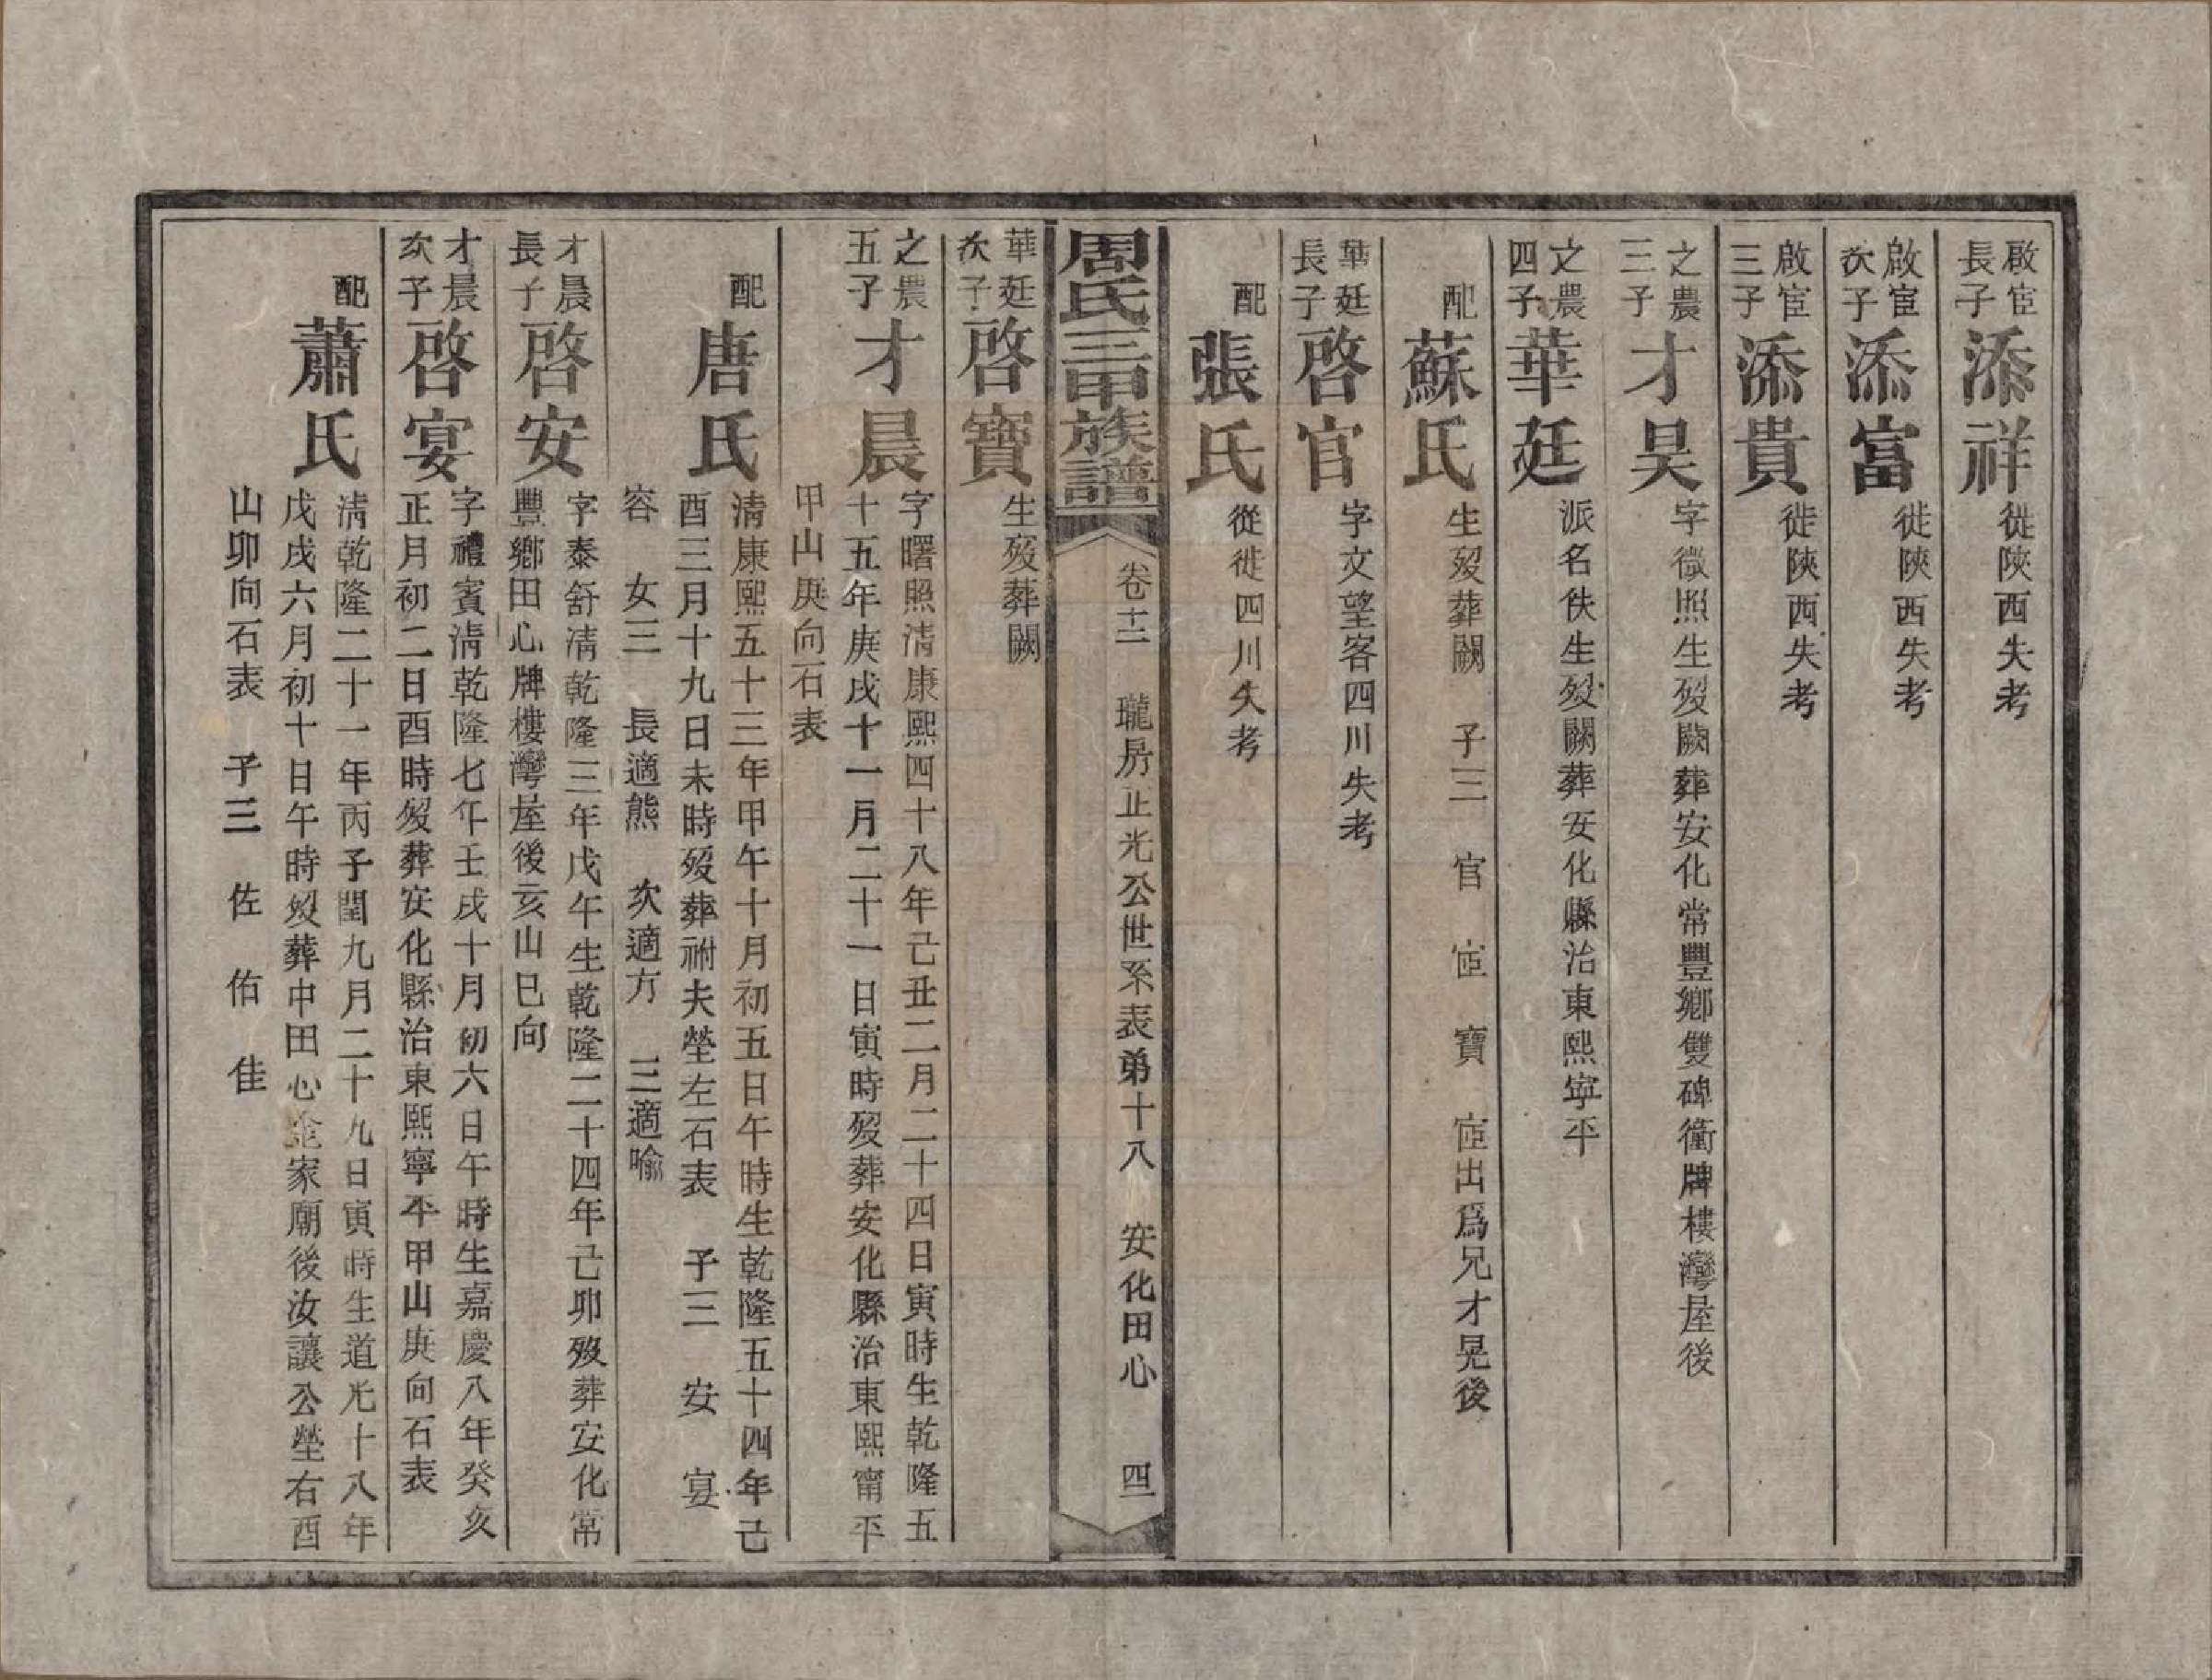 啟宦長子 添祥 徙陝西失考
啟宦次子 添富 徙陝西失考
啟宦三子 添貴 徙陝西失考
之農三子 才昊 字微照生歿闕葬安化常豐鄉雙碑衝牌樓灣屋後
之農四子 華廷 派名佚生歿闕葬安化縣治東熙寧平
配 蘇氏 生歿葬闕 子三 官 宧 寶 宧出爲兄才晃後
華廷長子 啓官 字文望客四川失考
配 張氏 從徙四川失考
周氏三甲族譜 卷十二 瓏房止光公世系表弟十八 安化田心 四
華廷次子 啓寶 生歿葬闕
之農五子 才晨 字曙照清康熙四十八年己丑二月二十四日寅時生乾隆五
十五年庚戌十一月二十一日寅時歿葬安化縣治東熙甯平
甲山庚向石表
配 唐氏 清康熙五十三年甲午十月初五日午時生乾隆五十四年己
酉三月十九日未時歿葬祔夫塋左石表 子三 安 宴
容 女三 長適熊 次適方 三適喻
才晨長子 啓安 字泰舒清乾隆三年戊午生乾隆二十四年己卯歿葬安化常
豐鄉田心牌樓灣屋後亥山巳向
才晨次子 啓宴 字禮賓清乾隆七年壬戌十月初六日午時生嘉慶八年癸亥
正月初二日酉時歿葬安化縣治東熙寧平甲山庚向石表
配 蕭氏 清乾隆二十一年丙子閏九月二十九日寅時生道光十八年
戊戌六月初十日午時歿葬中田心金家廟後汝讓公塋右酉
山卯向石表 子三 佐 佑 佳